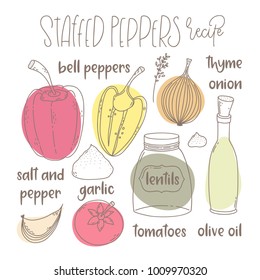 STAFFED PEPPERS recipe
bell peppers
thyme
onion
salt and
pepper
garlic
lentils
tomatoes
olive oil
shutterstock.com · 1009970320